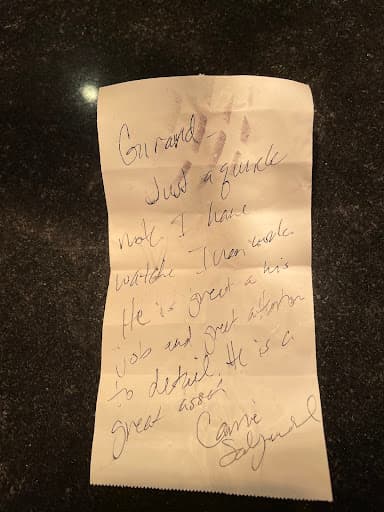 Gurand -
Just a quick
note. I have
watche Juan work.
He is great a his
job and great attention
to detail. He is a
great asset
Carrie